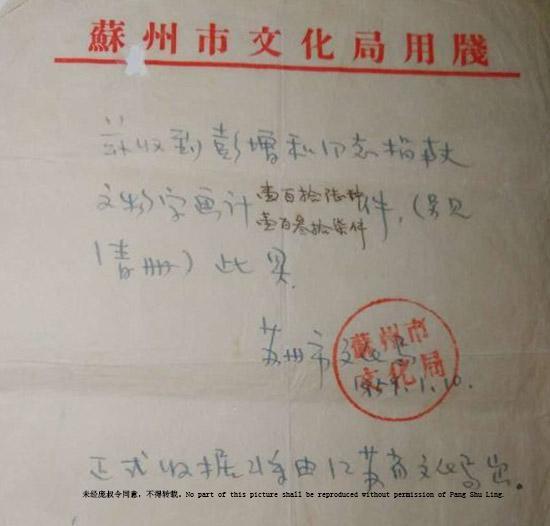 蘇州市文化局用牋
茲收到彭增和同志捐献
文物字画计壹百拾陆种
壹百叁拾柒件件,(另见
清册)此
苏州市文化局
蘇州市
文化局
1959.1.10.
正式收据将由江苏省文化局出。
未经庞叔令同意，不得转载。No part of this picture shall be reproduced without permission of Pang Shu Ling.